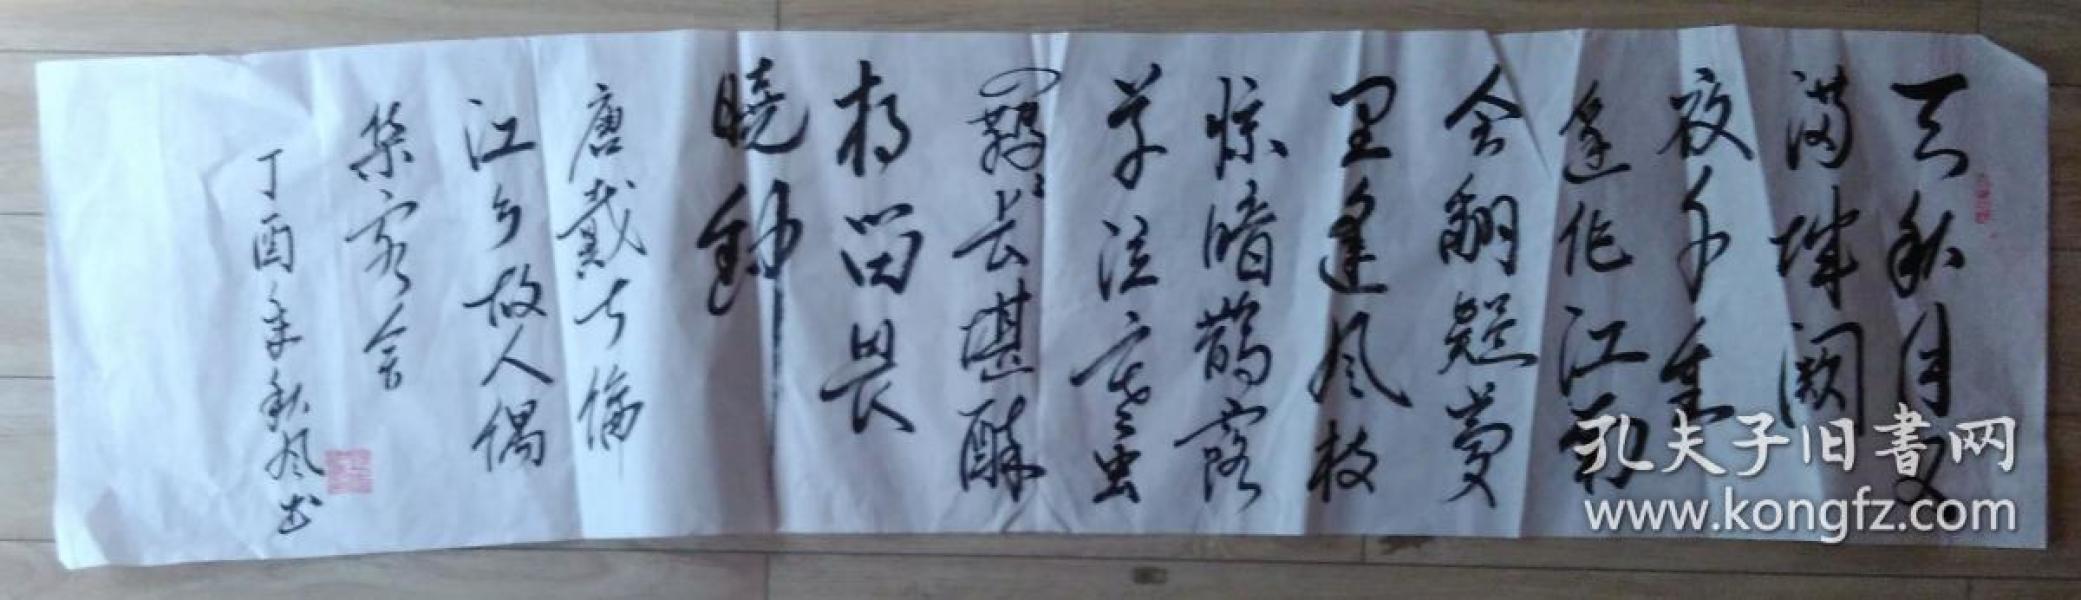 天秋月又
满城阙
夜千重
还作江南
会翻疑梦
里逢风枝
惊暗鹊露
草泣寒虫
羁长堪醉
相留畏
晓钟
唐戴叔倫
江乡故人偶
集客舍
丁酉年秋风书
孔夫子旧書网
www.kongfz.com